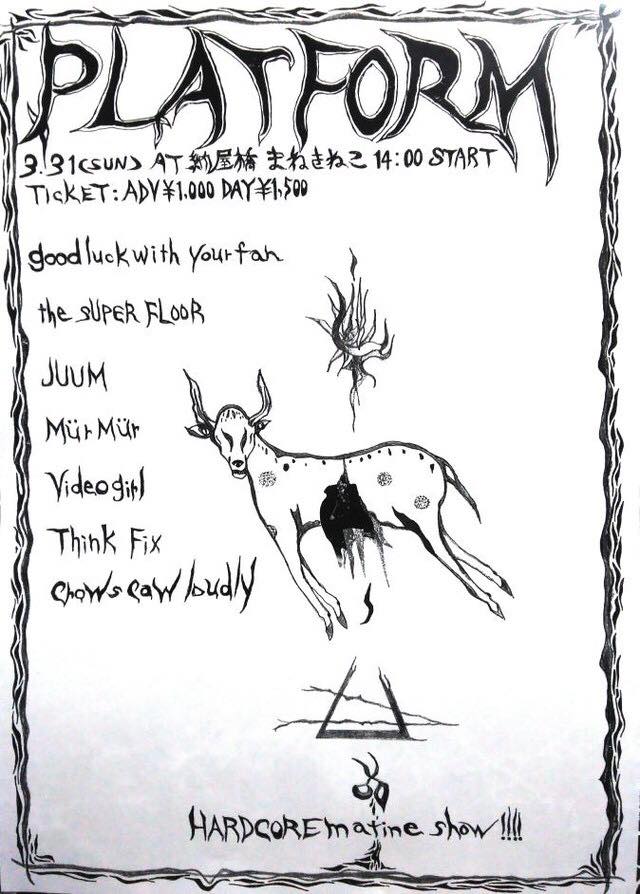 PLATFORM
3.31(SUN) AT 納屋橋 まねきねこ 14:00 START
TICKET: ADV¥1.000 DAY¥1,500
good luck with your fan
the SUPER FLOOR
JUUM
Mür Mür
Videogirl
Think Fix
Chows caw loudly
HARDCORE matine show!!!!